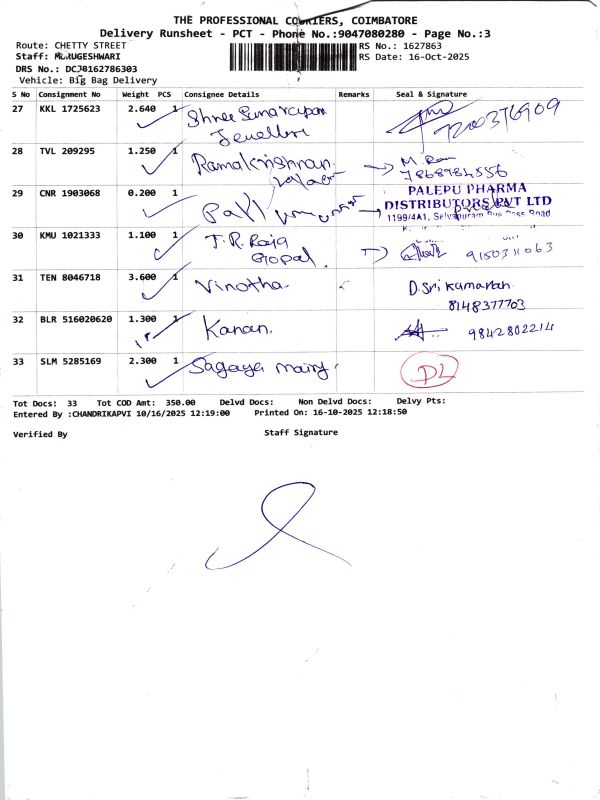 THE PROFESSIONAL COURIERS, COIMBATORE
Delivery Runsheet - PCT - Phone No.:9047080280 - Page No.:3
Route: CHETTY STREET
RS No.: 1627863
Staff: MURUGESHWARI
RS Date: 16-Oct-2025
DRS No.: DCJB162786303
Vehicle: Big Bag Delivery
S No Consignment No Weight PCS Consignee Details Remarks Seal & Signature
27 KKL 1725623 2.640 1 Shree
Jewellers
28 TVL 209295 1.250 1 Ramakrishnan M. Ram
7868984556
29 CNR 1903068 0.200 1 PALEPU PHARMA
DISTRIBUTORS PVT LTD
1199/4A1, Selvapuram Bye Pass Road
30 KMU 1021333 1.100 1 T.R. Raja
Gopal. 9150311063
31 TEN 8046718 3.600 1 Vinotha D. Sri kumaran
8148377703
32 BLR 516020620 1.300 1 Kanan. 9842802214
33 SLM 5285169 2.300 1 Sagaya mairy. DL
Tot Docs: 33 Tot COD Amt: 350.00 Delvd Docs: Non Delvd Docs: Delvy Pts:
Entered By :CHANDRIKAPVI 10/16/2025 12:19:00 Printed On: 16-10-2025 12:18:50
Verified By Staff Signature